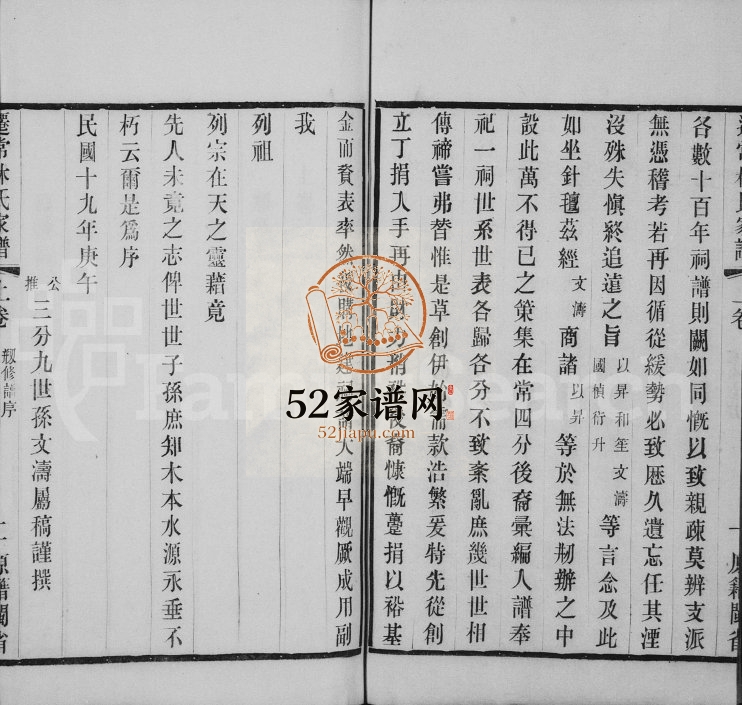 各數十百年祠譜則闕如同慨以致親疎莫辨支派
無憑稽考若再因循從緩勢必致歷久遺忘任其湮
沒殊失愼終追遠之旨 以昇和笙文濤 國楨衍升 等言念及此
如坐針氊茲經 文濤 商諸 以昇 等於無法刱辦之中
設此萬不得已之策集在常四分後裔彙編人譜奉
祀一祠世系世表各歸各分不致紊亂庶幾世世相
傳禘嘗弗替惟是草創伊 需款浩繁爰特先從創
立丁捐入手再由 後裔慷慨躉捐以裕基
金而資表率然 大端早觀厥成用副
我
列祖
列宗在天之靈藉竟
先人未竟之志俾世世子孫庶知木本水源永垂不
朽云爾是爲序
民國十九年庚午
公推 三分九世孫文濤屬稿謹撰
遷常林氏家譜 上卷 刱修譜序 二 原籍閩省
52家谱网
52jiapu.com